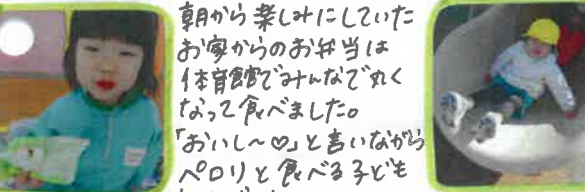 朝から楽しみにしていた
お家からのお弁当は
体育館でみんなで丸く
なって食べました。
「おいし〜♡」と言いながら
ペロリと食べる子ども